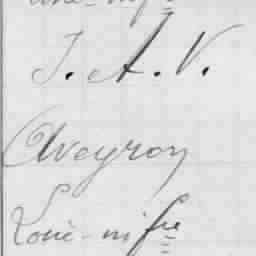 J. A. V.
Aveyron
Loire-infre